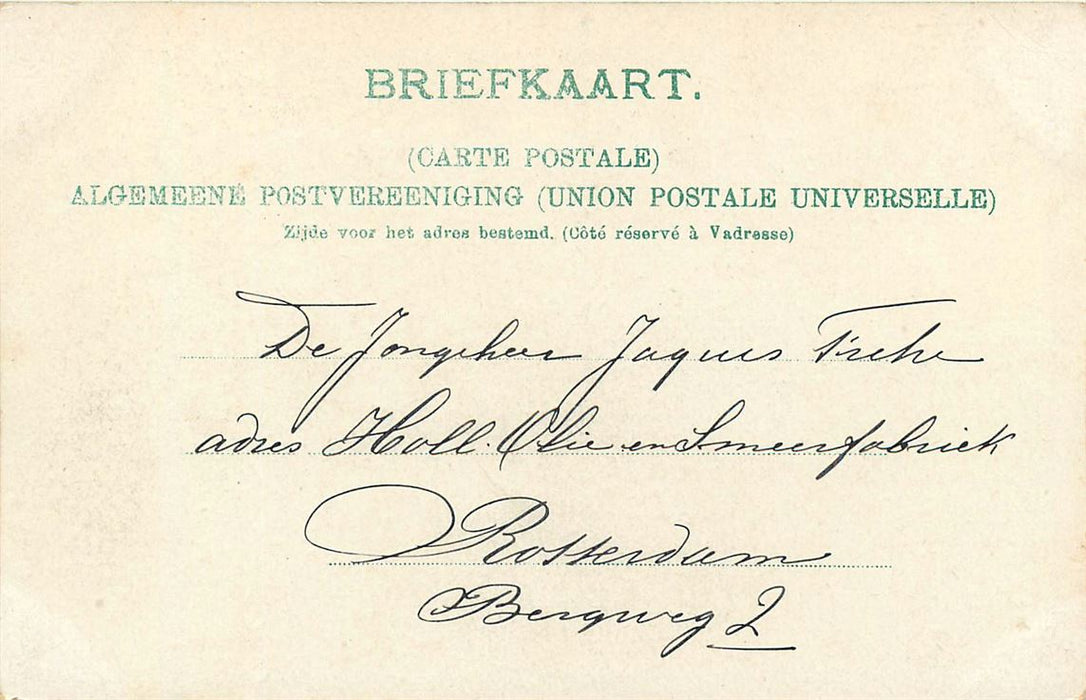 BRIEFKAART.
(CARTE POSTALE)
ALGEMEENE POSTVEREENIGING (UNION POSTALE UNIVERSELLE)
Zijde voor het adres bestemd. (Côté réservé à Vadresse)
De Jongeheer Jaques
adres Holl. Olie en Smeerfabriek
Rotterdam
Bergweg 2